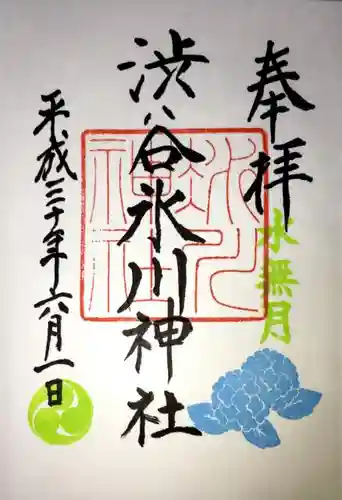 奉拝
水無月
渋谷氷川神社
氷川神社
平成三十年六月一日